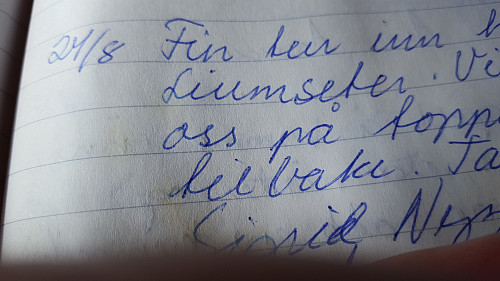 24/8 Fin tur inn
Liumseter. Vi
oss på topp
tilbake. Ta